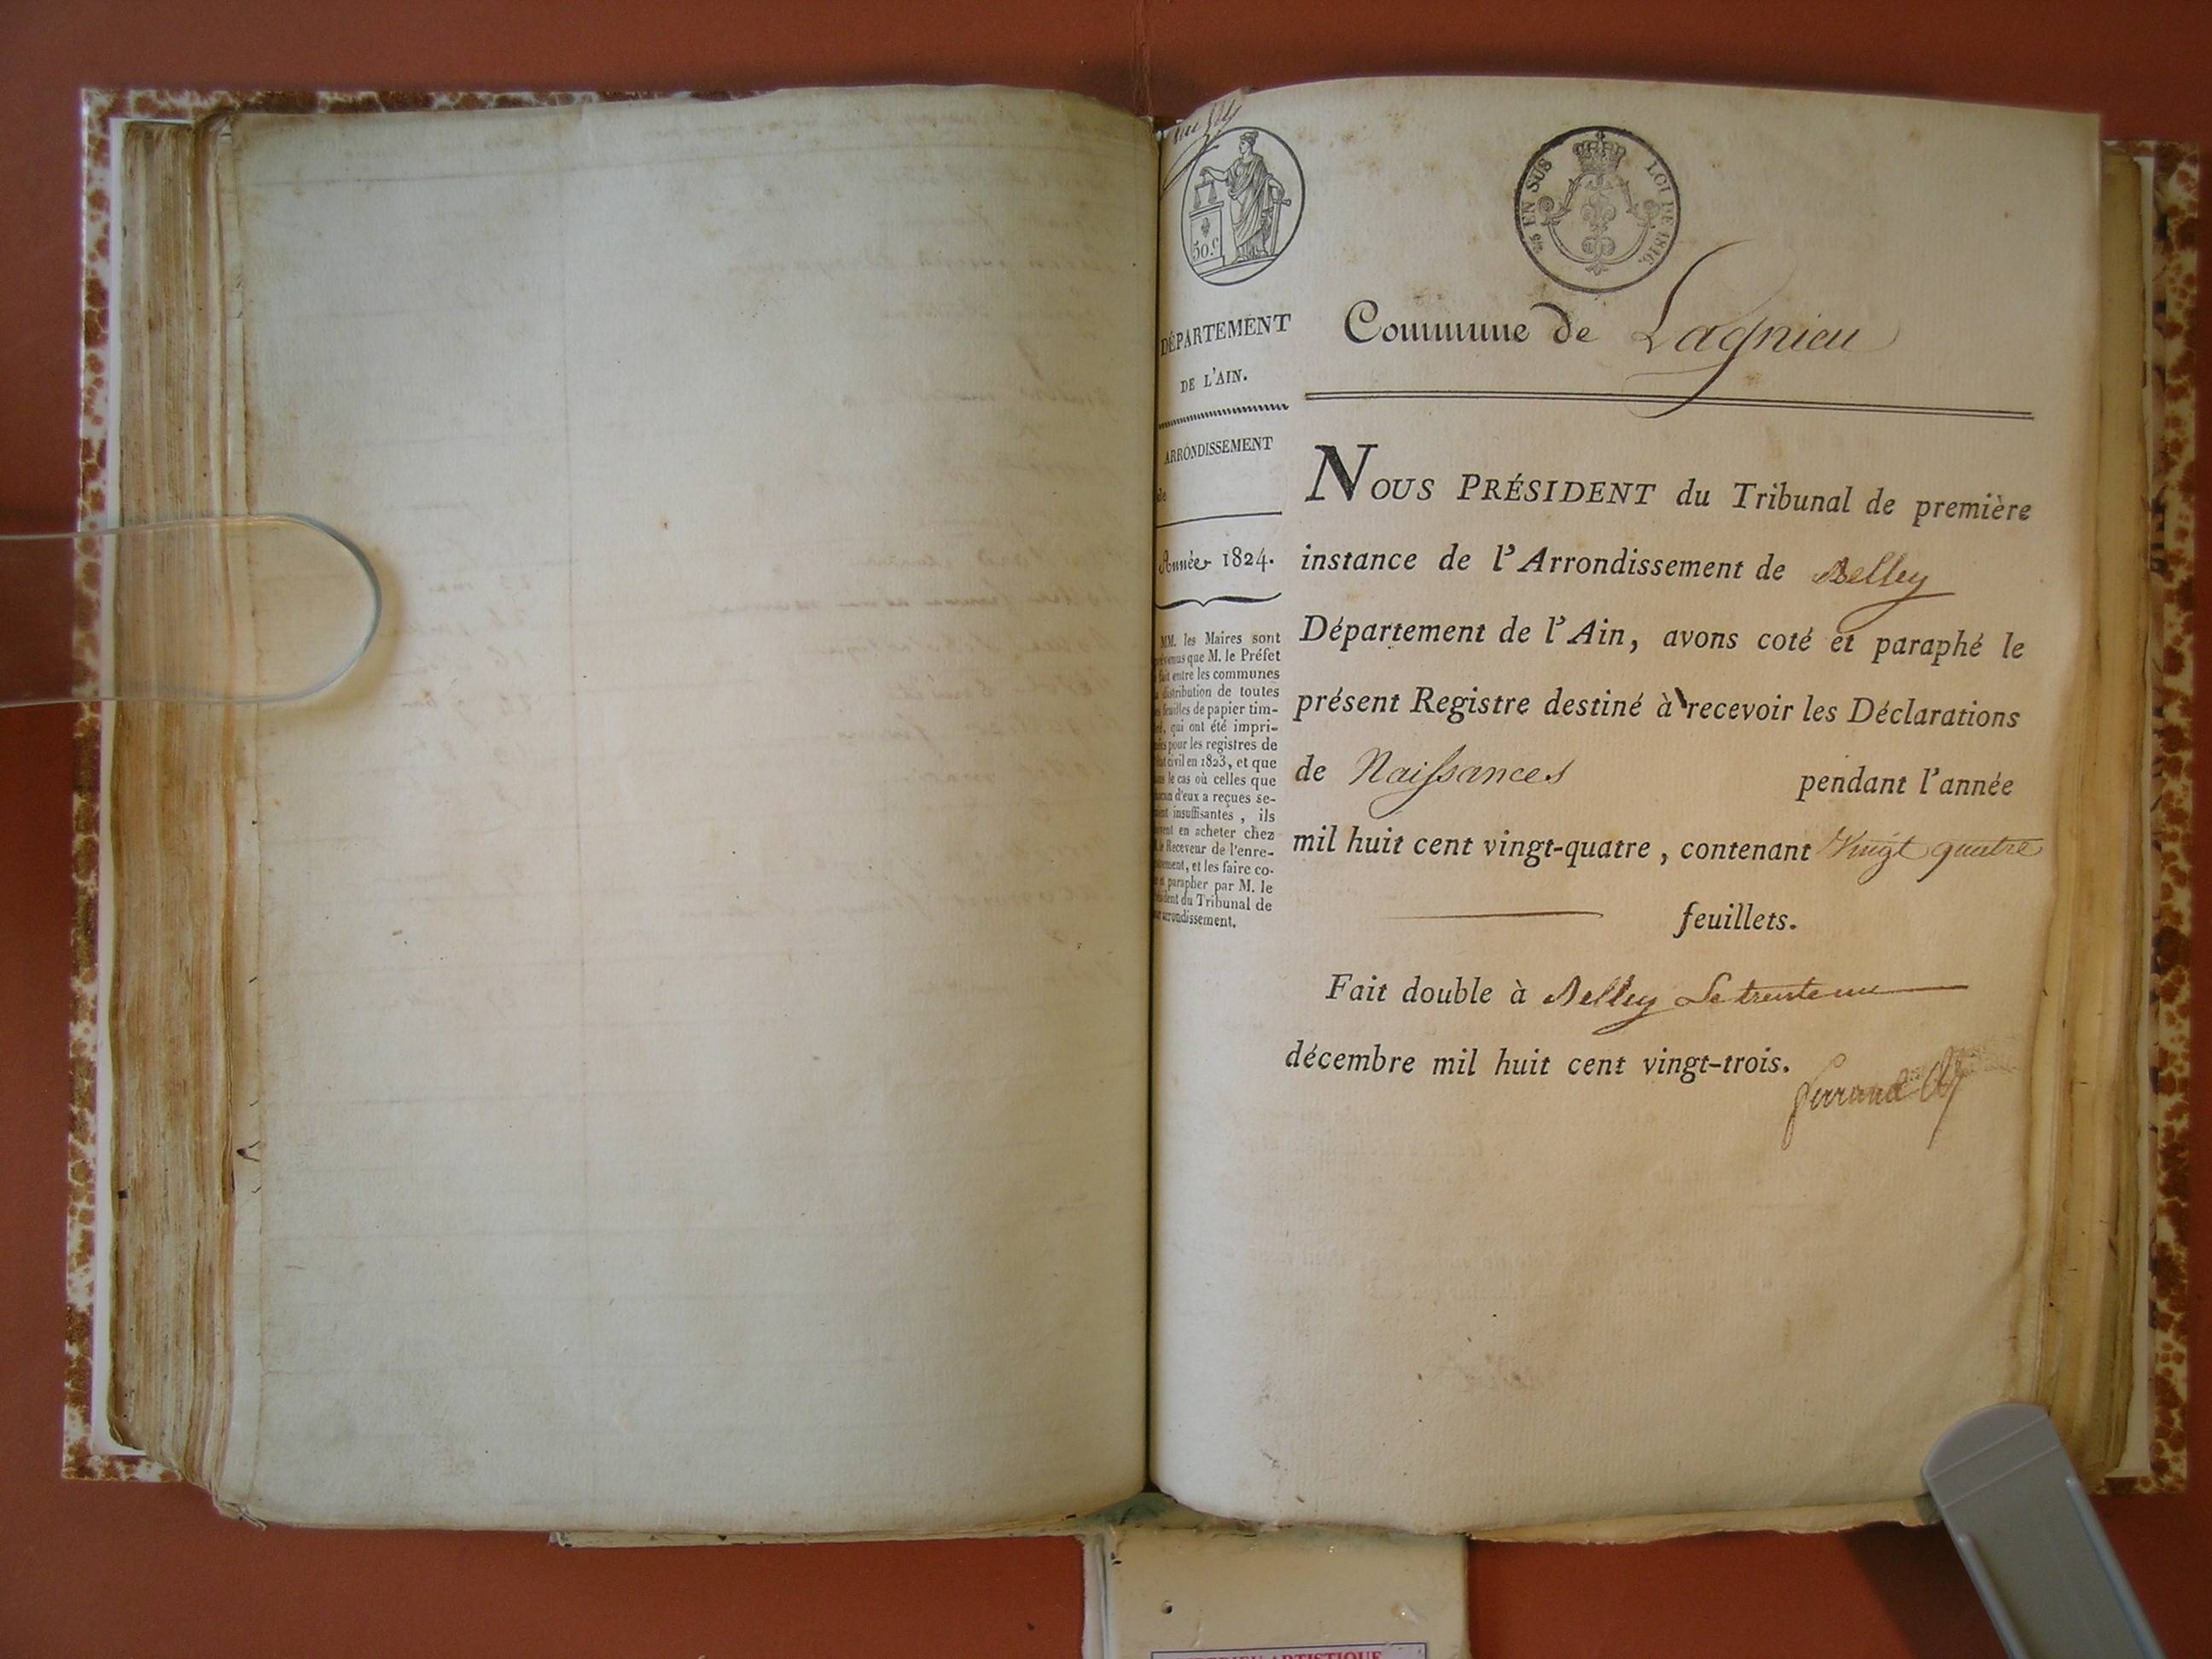 50.c
25 EN SUS LOI DE 1816.
DÉPARTEMENT
DE L'AIN.
ARRONDISSEMENT
de
Année 1824.
MM. les Maires sont
prévenus que M. le Préfet
fait entre les communes
distribution de toutes
feuilles de papier tim-
qui ont été impri-
pour les registres de
civil en 1823, et que
le cas où celles que
d'eux a reçues se-
insuffisantes, ils
en acheter chez
le Receveur de l'enre-
et les faire co-
et parapher par M. le
Président du Tribunal de
arrondissement.
Commune de Lagnieu
NOUS PRÉSIDENT du Tribunal de première
instance de l'Arrondissement de Belley
Département de l'Ain, avons coté et paraphé le
présent Registre destiné à recevoir les Déclarations
de Naissances pendant l'année
mil huit cent vingt-quatre, contenant Vingt quatre
feuillets.
Fait double à Belley Le trente un
décembre mil huit cent vingt-trois.
ARTISTIQUE